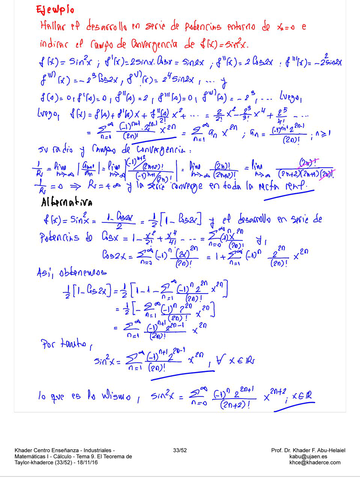 Ejemplo
Hallar el desarrollo en serie de potencias entorno de x₀=0 e
indicar el campo de convergencia de f(x)=sin²x.
f(x) = sin²x, f'(x)=2sinx Cosx = sin2x, f''(x)=2Cos2x, f'''(x)=-2²sin2x
f^{IV}(x) = -2³Cos2x, f^{V}(x)=2⁴sin2x, ... y
f(0)=0, f'(0)=0, f''(0)=2, f'''(0)=0, f^{IV}(0)=-2³, ... luego,
luego, f(x)=f(0)+f'(0)x+
= Σ_{n=1}^{∞} (-1)^{n+1} 2^{2n-1}/(2n)! x^{2n} = Σ_{n=1}^{∞} a_n x^{2n}; a_n = (-1)^{n+1} 2^{2n-1}/(2n)!, n≥1
su radio y campo de convergencia:
1/R = 0 ⇒ R=+∞ y la serie converge en toda la recta real.
Alternativa
f(x)=sin²x = (1-Cos2x)/2 = 1/2[1-Cos2x] y el desarrollo en serie de
potencias
Cosx = 1-x²/2!+x⁴/4! ... = Σ_{n=0}^{∞} (-1)^n x^{2n}/(2n)! y,
Cos2x = Σ_{n=0}^{∞} (-1)^n (2x)^{2n}/(2n)! = 1+Σ_{n=1}^{∞} (-1)^n 2^{2n}/(2n)! x^{2n}
Así, obtenemos
1/2[1-Cos2x] = 1/2[1-1-Σ_{n=1}^{∞} (-1)^n 2^{2n}/(2n)! x^{2n}]
= 1/2[-Σ_{n=1}^{∞} (-1)^n 2^{2n}/(2n)! x^{2n}]
= Σ_{n=1}^{∞} (-1)^{n+1} 2^{2n-1}/(2n)! x^{2n}
Por tanto,
sin²x = Σ_{n=1}^{∞} (-1)^{n+1} 2^{2n-1}/(2n)! x^{2n}, ∀ x∈ℝ
lo que es lo mismo, sin²x = Σ_{n=0}^{∞} (-1)^n 2^{2n+1}/(2n+2)! x^{2n+2}, x∈ℝ
Khader Centro Enseñanza - Industriales -
Matemáticas I - Cálculo - Tema 9. El Teorema de
Taylor-khaderce (33/52) - 18/11/16
33/52
Prof. Dr. Khader F. Abu-Helaiel
kabu@ujaen.es
khce@khaderce.com